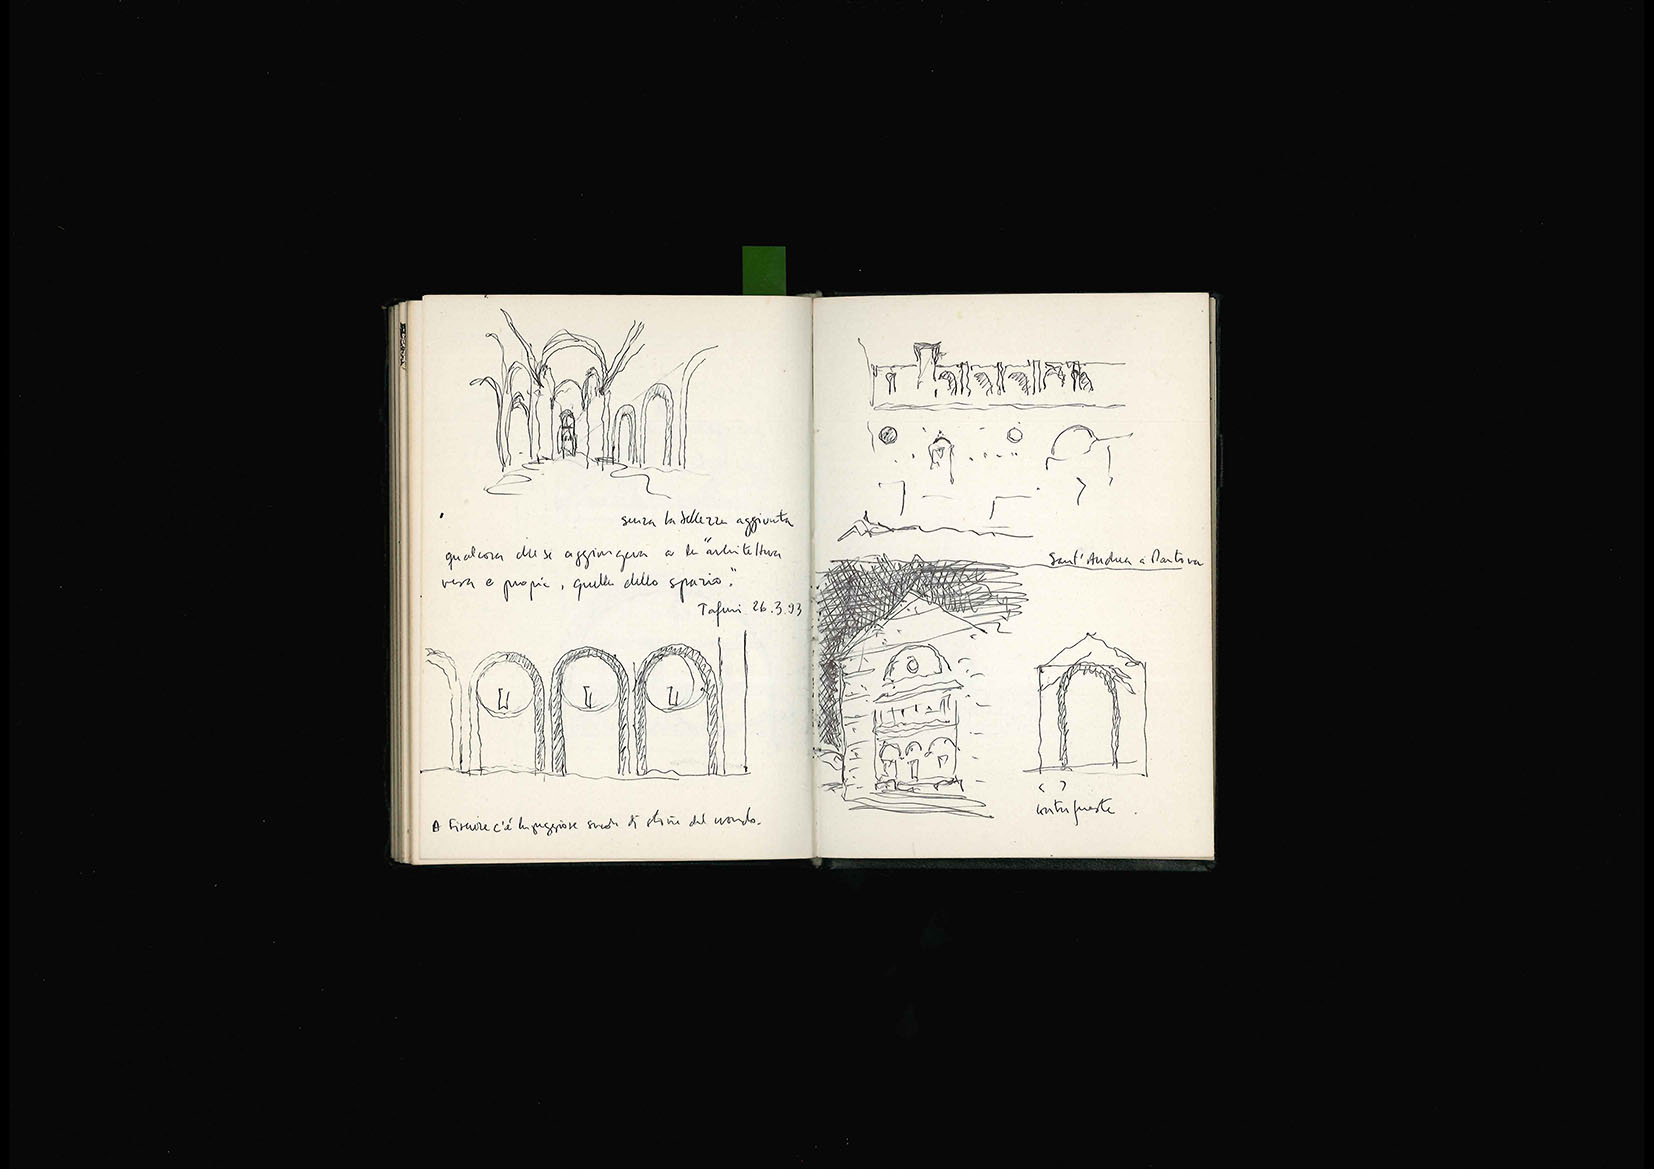 senza la bellezza aggiunta
qualcosa che si aggiungeva a la "architettura
vera e propria, quella dello spazio."
Tafuri 26.3.93
A Firenze c'è la peggiore scuola di storia del mondo.
Sant'Andrea a Mantova